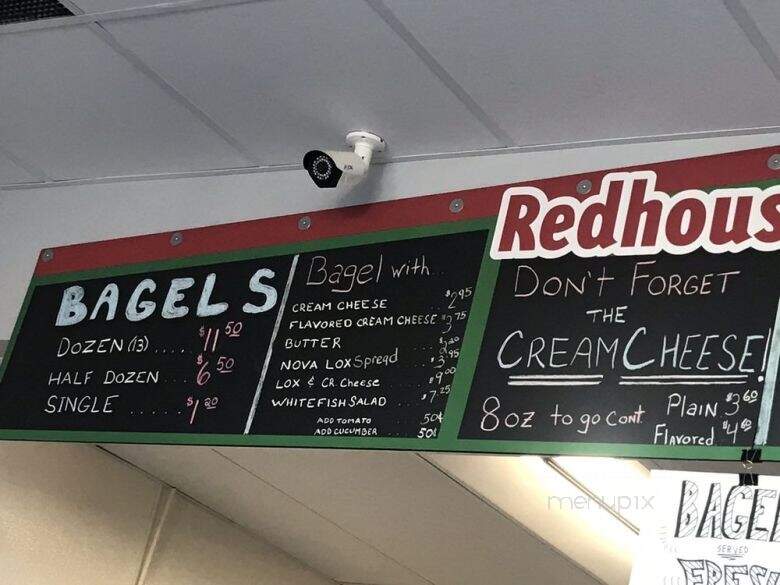 BAGELS
DOZEN (13) .... $11 50
HALF DOZEN ... $6 50
SINGLE ...... $1 20
Bagel with...
CREAM CHEESE $2 95
FLAVORED CREAM CHEESE $3 75
BUTTER
NOVA LOX Spread ... $3 95
LOX & CR. Cheese ... $9 00
WHITEFISH SALAD ... $7 25
ADD TOMATO 50¢
ADD CUCUMBER 50¢
Redhous
DON'T FORGET
THE
CREAM CHEESE!
8 oz to go Cont. Plain $3 60
Flavored $4
menupix
BAGE
SERVED